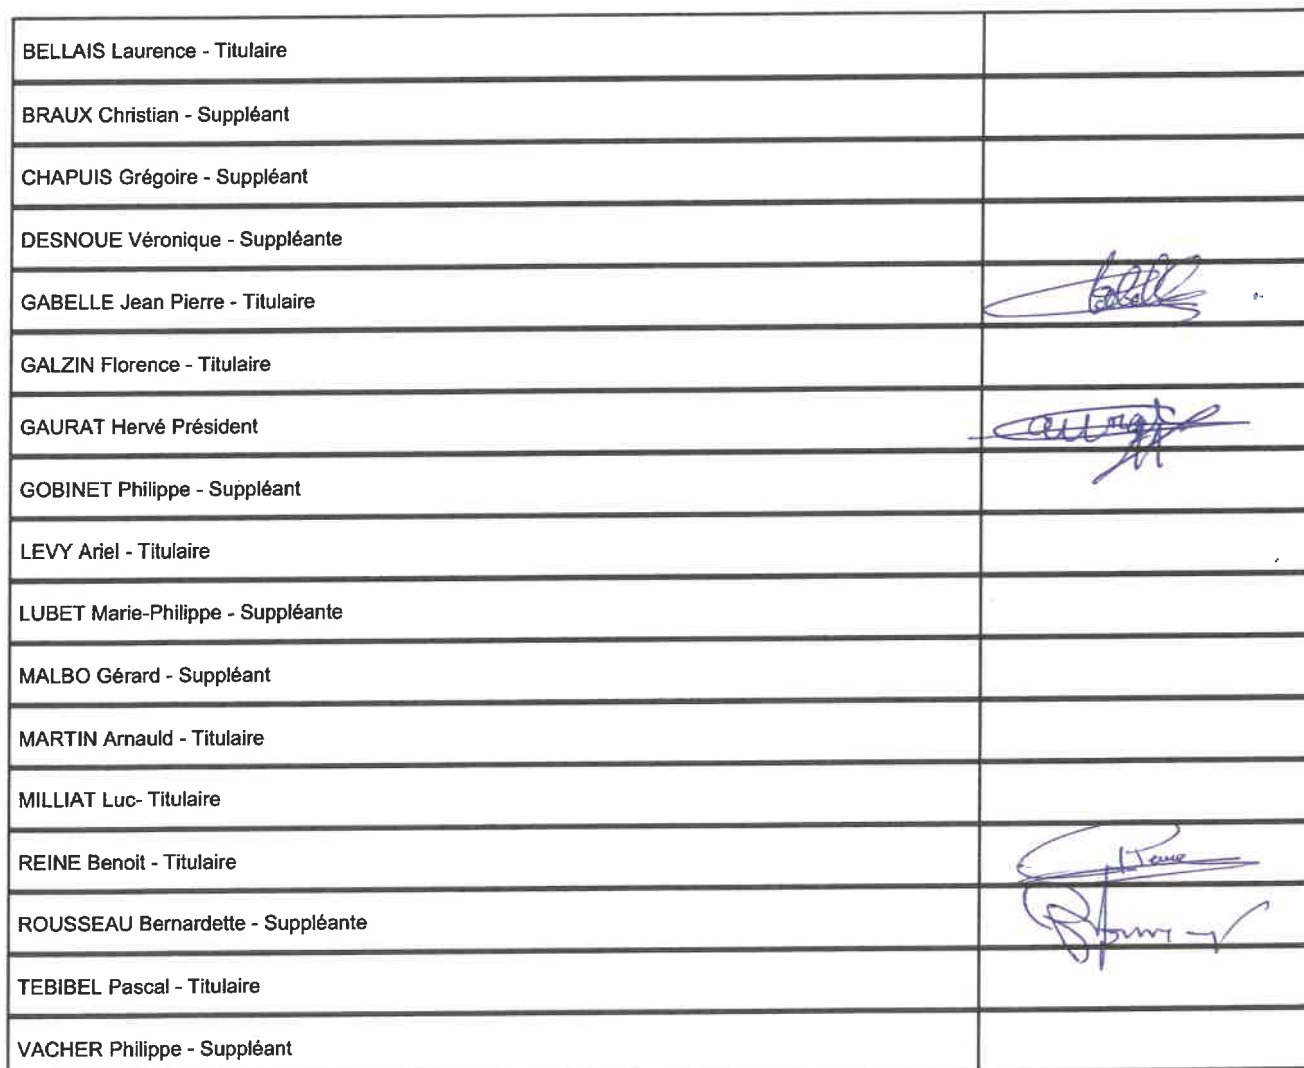 BELLAIS Laurence - Titulaire
BRAUX Christian - Suppléant
CHAPUIS Grégoire - Suppléant
DESNOUE Véronique - Suppléante
GABELLE Jean Pierre - Titulaire
GALZIN Florence - Titulaire
GAURAT Hervé Président
GOBINET Philippe - Suppléant
LEVY Ariel - Titulaire
LUBET Marie-Philippe - Suppléante
MALBO Gérard - Suppléant
MARTIN Arnauld - Titulaire
MILLIAT Luc- Titulaire
REINE Benoit - Titulaire
ROUSSEAU Bernardette - Suppléante
TEBIBEL Pascal - Titulaire
VACHER Philippe - Suppléant